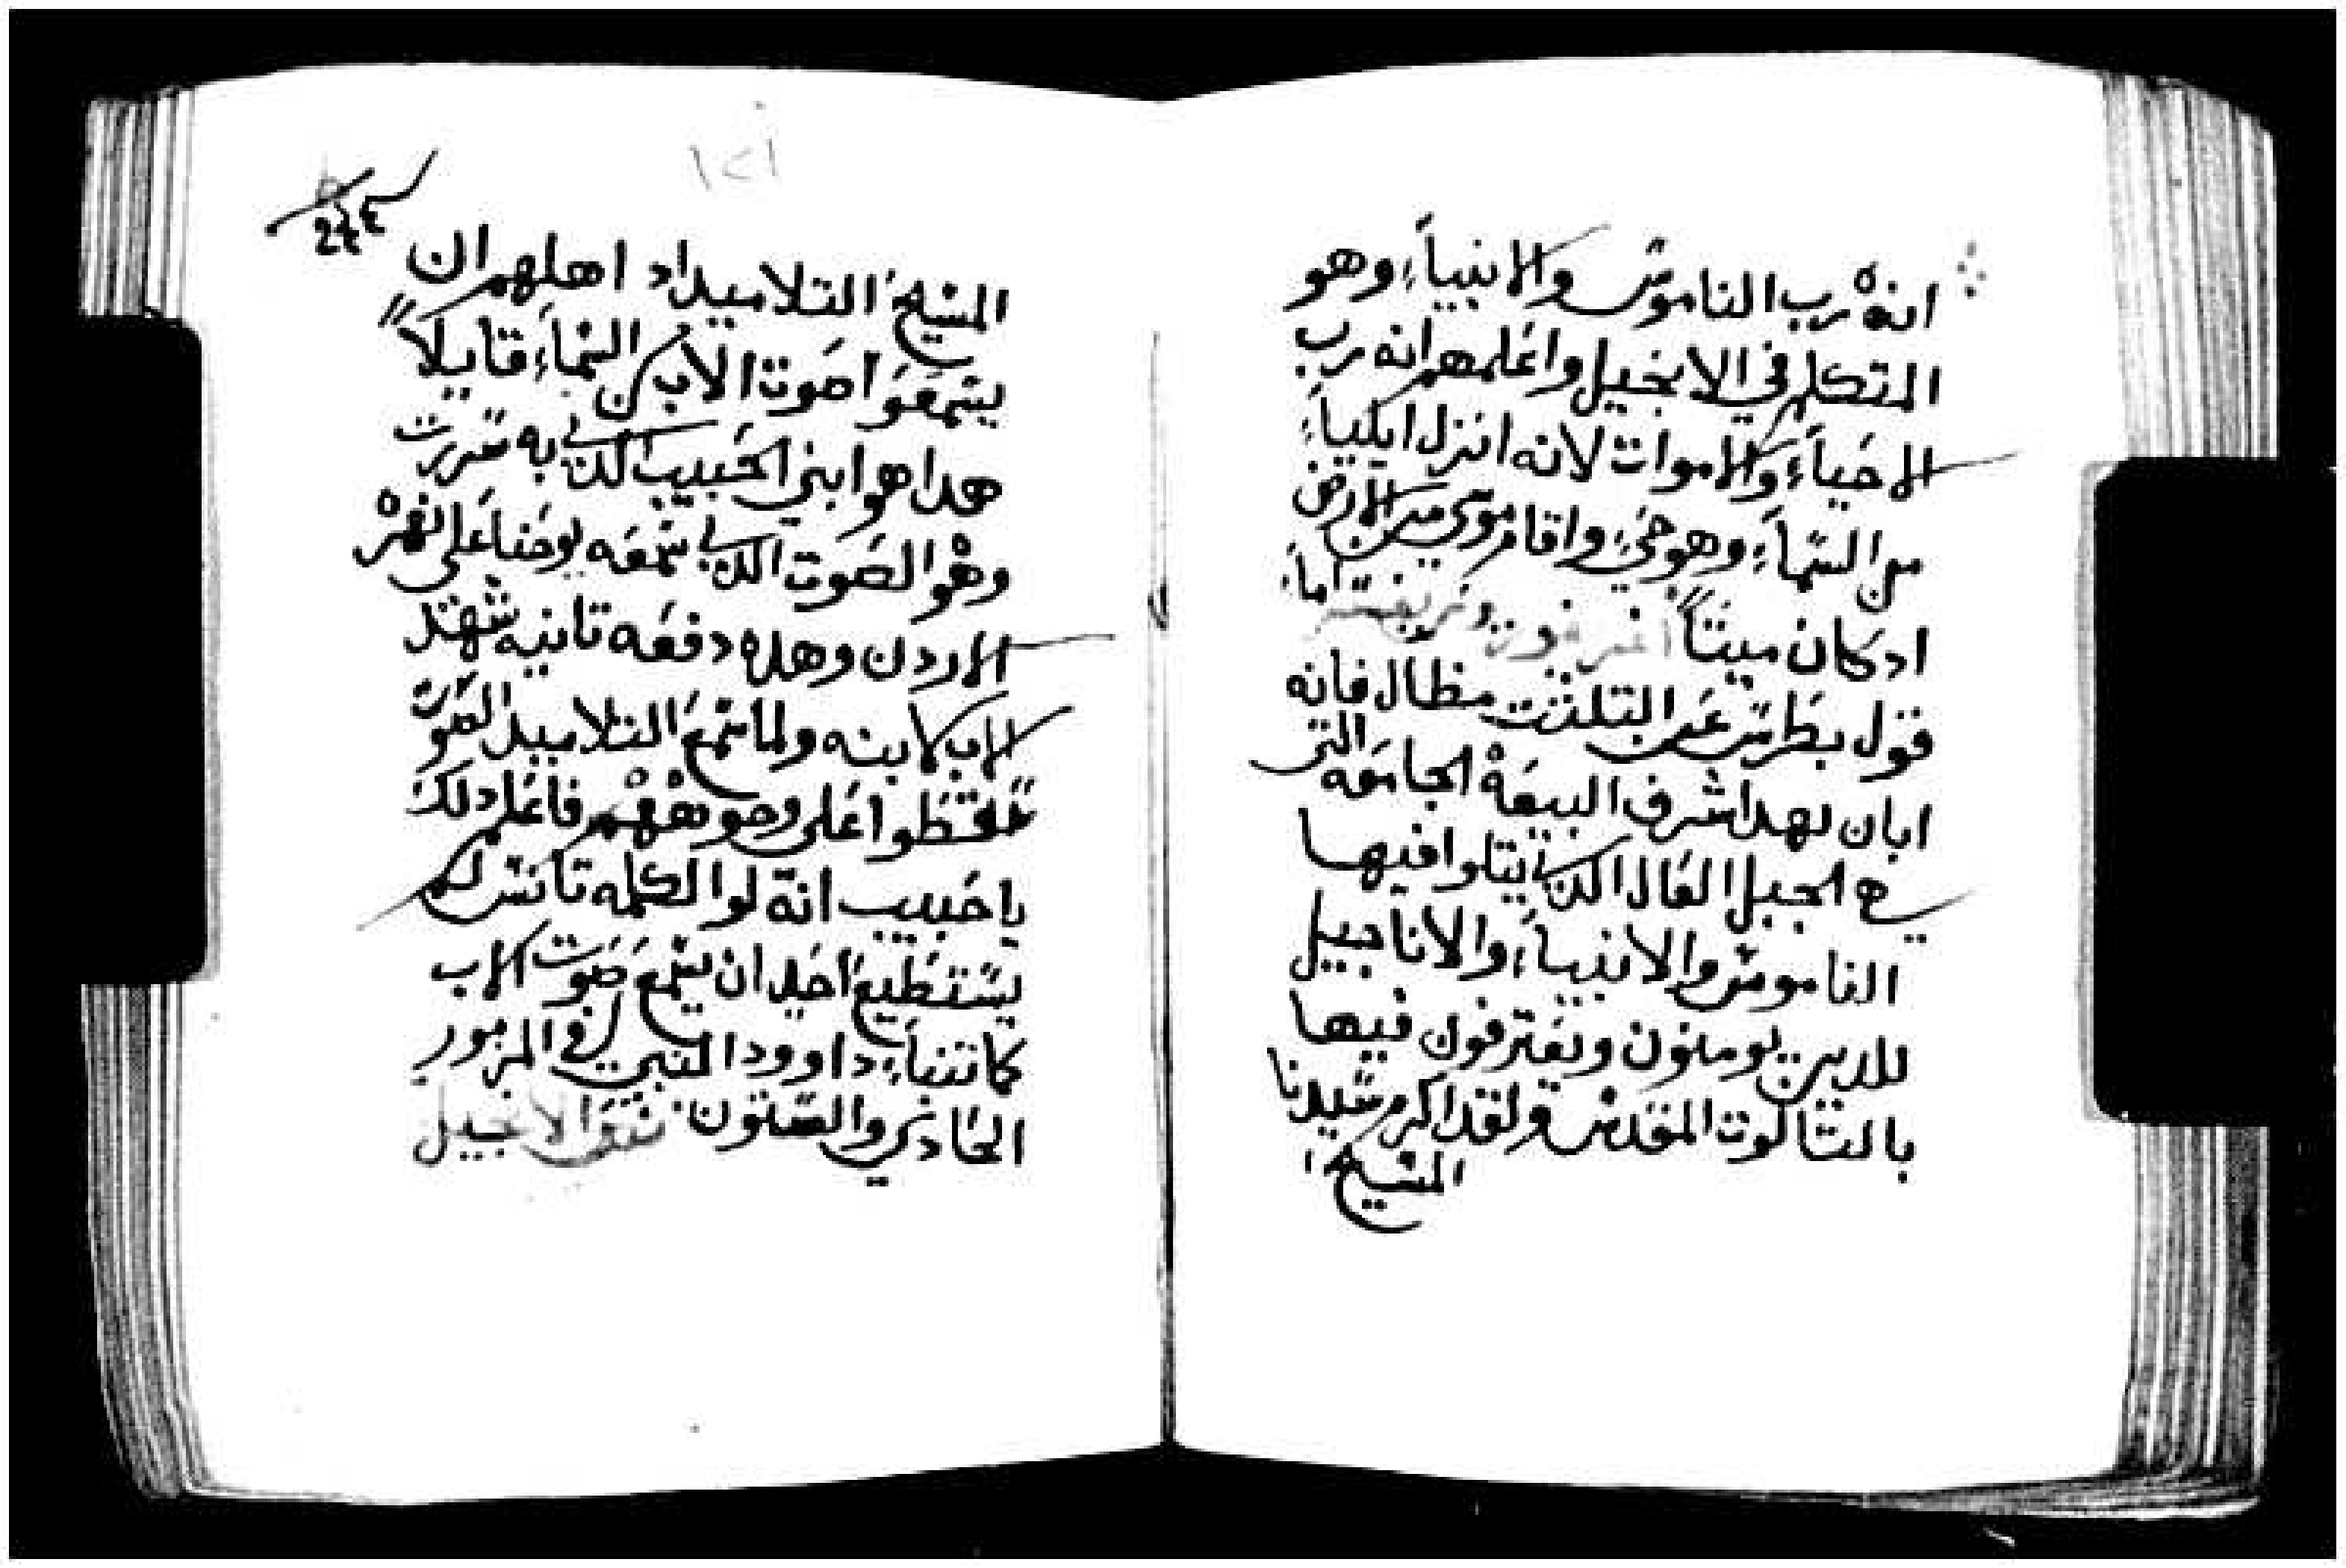 انه رب الناموس والانبياء وهو
المتكلم في الانجيل واعلمهم انه رب
الاحياء والاموات لانه انزل ايلياء
من السماء وهو حي واقام موسي من الارض
ادكان ميتاً اما
قول بطرس عن التلتت مظال فانه
ابان بهدا شرف البيعه الجامعه التى
هي الجبل العال الدي يتلوا فيها
الناموس والانبياء والاناجيل
للدين يومنون ويعترفون فيها
بالتالوت المقدس ولقد اكرم سيدنا
المسيح
١٢١
المسيح التلاميد اد اهلهم ان
يسمعوا صوت الاب من السماء قايلاً
هدا هو ابني الحبيب الدي به سررت
وهو الصوت الدي سمعه يوحنا على نهر
الاردن وهده دفعه تانيه شهد
الاب لابنه ولما سمع التلاميد الصوت
سقطوا على وجوههم فاعلم دلك
يا حبيب انه لو الكلمه تانس لم
يستطيع احد ان يسمع صوت الاب
كانتباء داوود النبي في المزمور
الحادي والستون الانجيل